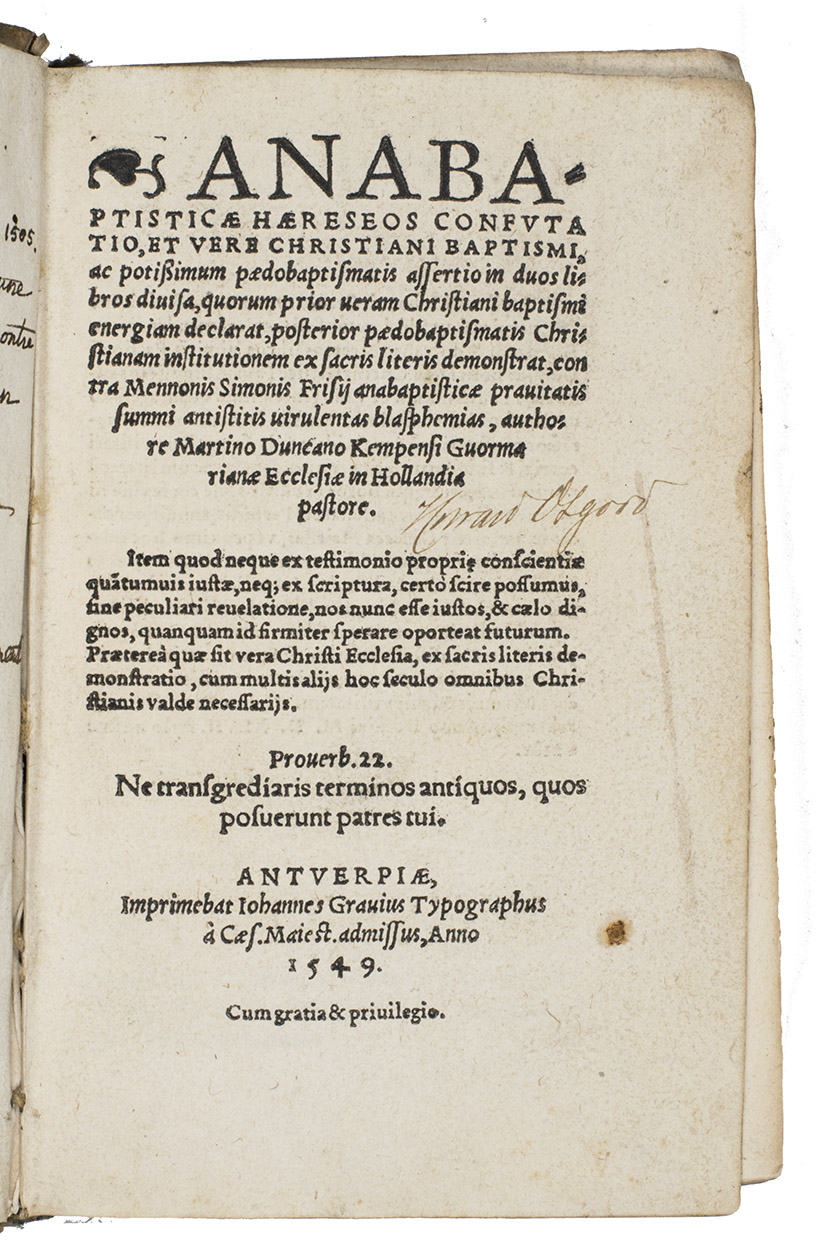 1505.
❧ ANABA-
PTISTICÆ HÆRESEOS CONFVTA
TIO, ET VERE CHRISTIANI BAPTISMI,
ac potißimum pædobaptiſmatis aſſertio in duos li-
bros diuiſa, quorum prior ueram Chriſtiani baptiſmi
energiam declarat, poſterior pædobaptiſmatis Chri-
ſtianam inſtitutionem ex ſacris literis demonſtrat, con
tra Mennonis Simonis Friſij anabaptiſticæ prauitatis
ſummi antiſtitis uirulentas blaſphemias, autho-
re Martino Duncano Kempenſi Guorma
rianæ Eccleſiæ in Hollandia
paſtore.
Howard Osgood
Item quod neque ex teſtimonio proprię conſcientiæ
quãtumuis iuſtæ, neq; ex ſcriptura, certò ſcire poſſumus,
ſine peculiari reuelatione, nos nunc eſſe iuſtos, & cælo di-
gnos, quanquam id firmiter ſperare oporteat futurum.
Prætereà quæ ſit vera Chriſti Eccleſia, ex ſacris literis de-
monſtratio, cum multis alijs hoc ſeculo omnibus Chri-
ſtianis valde neceſſarijs.
Prouerb. 22.
Ne tranſgrediaris terminos antiquos, quos
poſuerunt patres tui.
ANTVERPIÆ,
Imprimebat Iohannes Grauius Typographus
à Cæſ. Maieſt. admiſſus, Anno
1549.
Cum gratia & priuilegio.